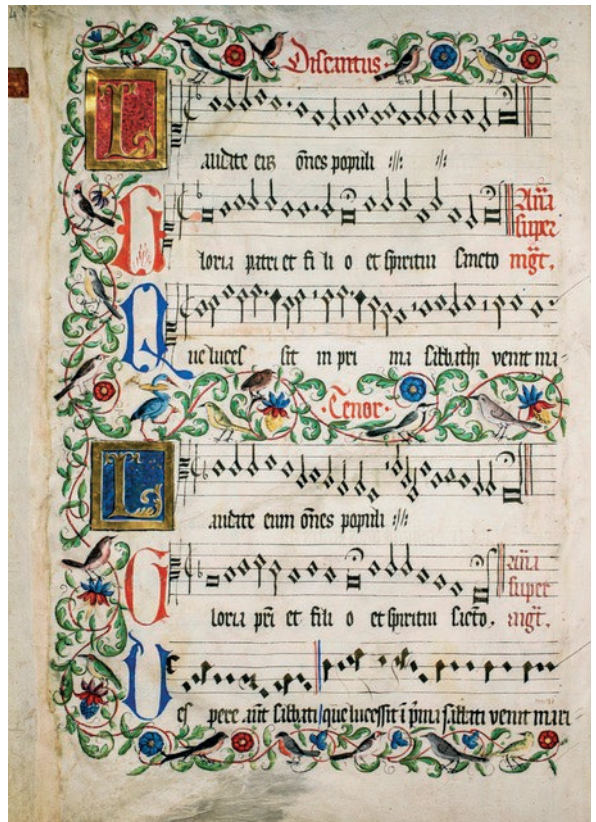 Discantus
Laudate eum o̅nes populi :||: ·||·
Gloria patri et fi li o et spiritui sancto Aña super mgt̅.
Que luces sit in pri ma sabbathi venit ma-
Tenor
Laudate eum o̅nes populi :||:
Gloria pr̅i et fili o et spiritui sa̅cto. Aña super mgt̅.
Ves pere au̅t sabbati / que lucessit i̅ p̅ma sabbati venit mari